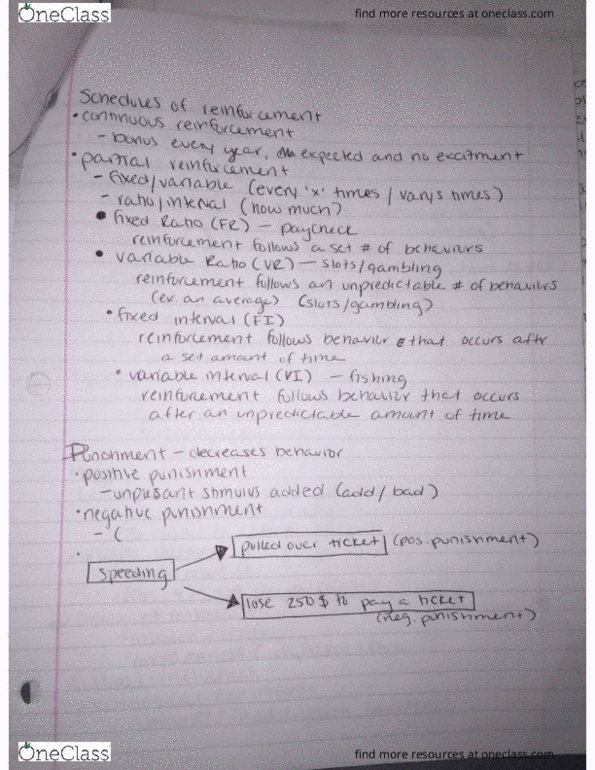 OneClass
find more resources at oneclass.com
Schedules of reinforcement
• continuous reinforcement
- bonus every year, expected and no excitment
• partial reinforcement
- fixed/variable (every 'x' times / varys times)
- ratio/interval (how much?)
• fixed Ratio (FR) - paycheck
reinforcement follows a set # of behaviors
• variable Ratio (VR) - slots/gambling
reinforcement follows an unpredictable # of behaviors
(ex. an average) (slots/gambling)
• fixed interval (FI)
reinforcement follows behavior that occurs after
a set amount of time
• variable interval (VI) - fishing
reinforcement follows behavior that occurs
after an unpredictable amount of time
Punishment - decreases behavior
• positive punishment
- unplesant stimulus added (add/bad)
• negative punishment
- (
•
speeding
pulled over ticket (pos. punishment)
lose 250$ to pay a ticket
(neg. punishment)
OneClass
find more resources at oneclass.com